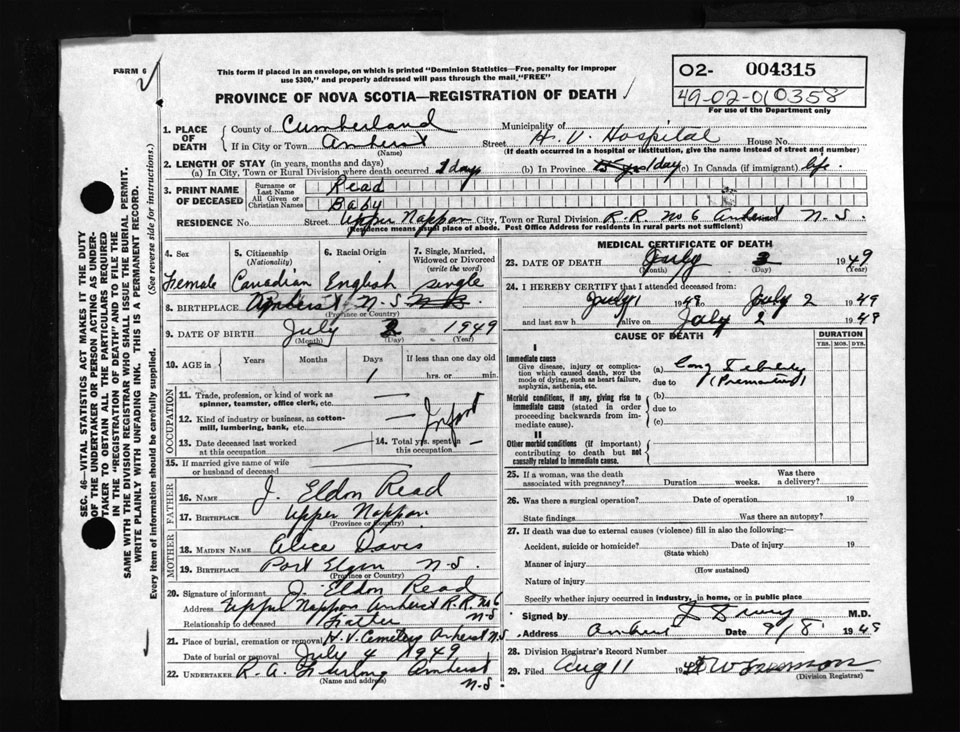 FORM 6
This form if placed in an envelope, on which is printed "Dominion Statistics—Free, penalty for improper
use $300," and properly addressed will pass through the mail "FREE"
02- 004315
49-02-010358
For use of the Department only
PROVINCE OF NOVA SCOTIA—REGISTRATION OF DEATH
1. PLACE OF DEATH County of Cumberland Municipality of
If in City or Town Amherst Street H. V. Hospital House No.
(Name) (If death occurred in a hospital or institution, give the name instead of street and number)
2. LENGTH OF STAY (in years, months and days)
(a) In City, Town or Rural Division where death occurred 1 day (b) In Province 1 day (c) In Canada (if immigrant) life
3. PRINT NAME OF DECEASED Surname or Last Name Read
All Given or Christian Names Baby
RESIDENCE No. Street Upper Nappan City, Town or Rural Division R.R. No 6 Amherst N.S.
(Residence means usual place of abode. Post Office Address for residents in rural parts not sufficient)
4. Sex 5. Citizenship (Nationality) 6. Racial Origin 7. Single, Married, Widowed or Divorced (write the word)
Female Canadian English single
8. BIRTHPLACE Amherst N.S.
(Province or Country)
9. DATE OF BIRTH July 2 1949
(Month) (Day) (Year)
10. AGE in Years Months Days If less than one day old
1 hrs. or min.
OCCUPATION
11. Trade, profession, or kind of work as
spinner, teamster, office clerk, etc.
12. Kind of industry or business, as cotton-
mill, lumbering, bank, etc. Infant
13. Date deceased last worked
at this occupation
14. Total yrs. spent in
this occupation
15. If married give name of wife
or husband of deceased
FATHER
16. NAME J. Eldon Read
17. BIRTHPLACE Upper Nappan
(Province or Country)
MOTHER
18. MAIDEN NAME Alice Davis
19. BIRTHPLACE Port Elgin N.S.
(Province or Country)
20. Signature of informant J. Eldon Read
Address Upper Nappan Amherst R.R. No 6
N.S
Relationship to deceased Father
21. Place of burial, cremation or removal H.V. Cemetery Amherst N.S
Date of burial or removal July 4 1949
22. UNDERTAKER R. A. Amherst
(Name and address) N.S
MEDICAL CERTIFICATE OF DEATH
23. DATE OF DEATH July 1949
(Month) (Day) (Year)
24. I HEREBY CERTIFY that I attended deceased from:
July 1 1949 to July 2 1949
and last saw h alive on July 2 1949
CAUSE OF DEATH DURATION
YRS. MOS. DYS.
I
Immediate cause
Give disease, injury or complica-
tion which caused death, NOT the
mode of dying, such as heart failure,
asphyxia, asthenia, etc.
(a) Cong Debility
due to (Premature)
Morbid conditions, if any, giving rise to
immediate cause (stated in order
proceeding backwards from im-
mediate cause).
(b)
due to
(c)
II
Other morbid conditions (if important)
contributing to death but not
causally related to immediate cause.
25. If a woman, was the death
associated with pregnancy? Duration weeks. Was there
a delivery?
26. Was there a surgical operation? Date of operation 19
State findings Was there an autopsy?
27. If death was due to external causes (violence) fill in also the following:—
Accident, suicide or homicide? Date of injury 19
(State which)
Manner of injury
(How sustained)
Nature of injury
Specify whether injury occurred in industry, in home, or in public place
Signed by M.D.
Address Amherst Date 9/8 1949
28. Division Registrar's Record Number
29. Filed Aug 11 19
(Division Registrar)
SEC. 46—VITAL STATISTICS ACT MAKES IT THE DUTY
OF THE UNDERTAKER OR PERSON ACTING AS UNDER-
TAKER TO OBTAIN ALL THE PARTICULARS REQUIRED
IN THE "REGISTRATION OF DEATH" AND TO FILE THE
SAME WITH THE DIVISION REGISTRAR WHO SHALL ISSUE THE BURIAL PERMIT.
WRITE PLAINLY WITH UNFADING INK. THIS IS A PERMANENT RECORD.
Every item of information should be carefully supplied. (See reverse side for instructions.)